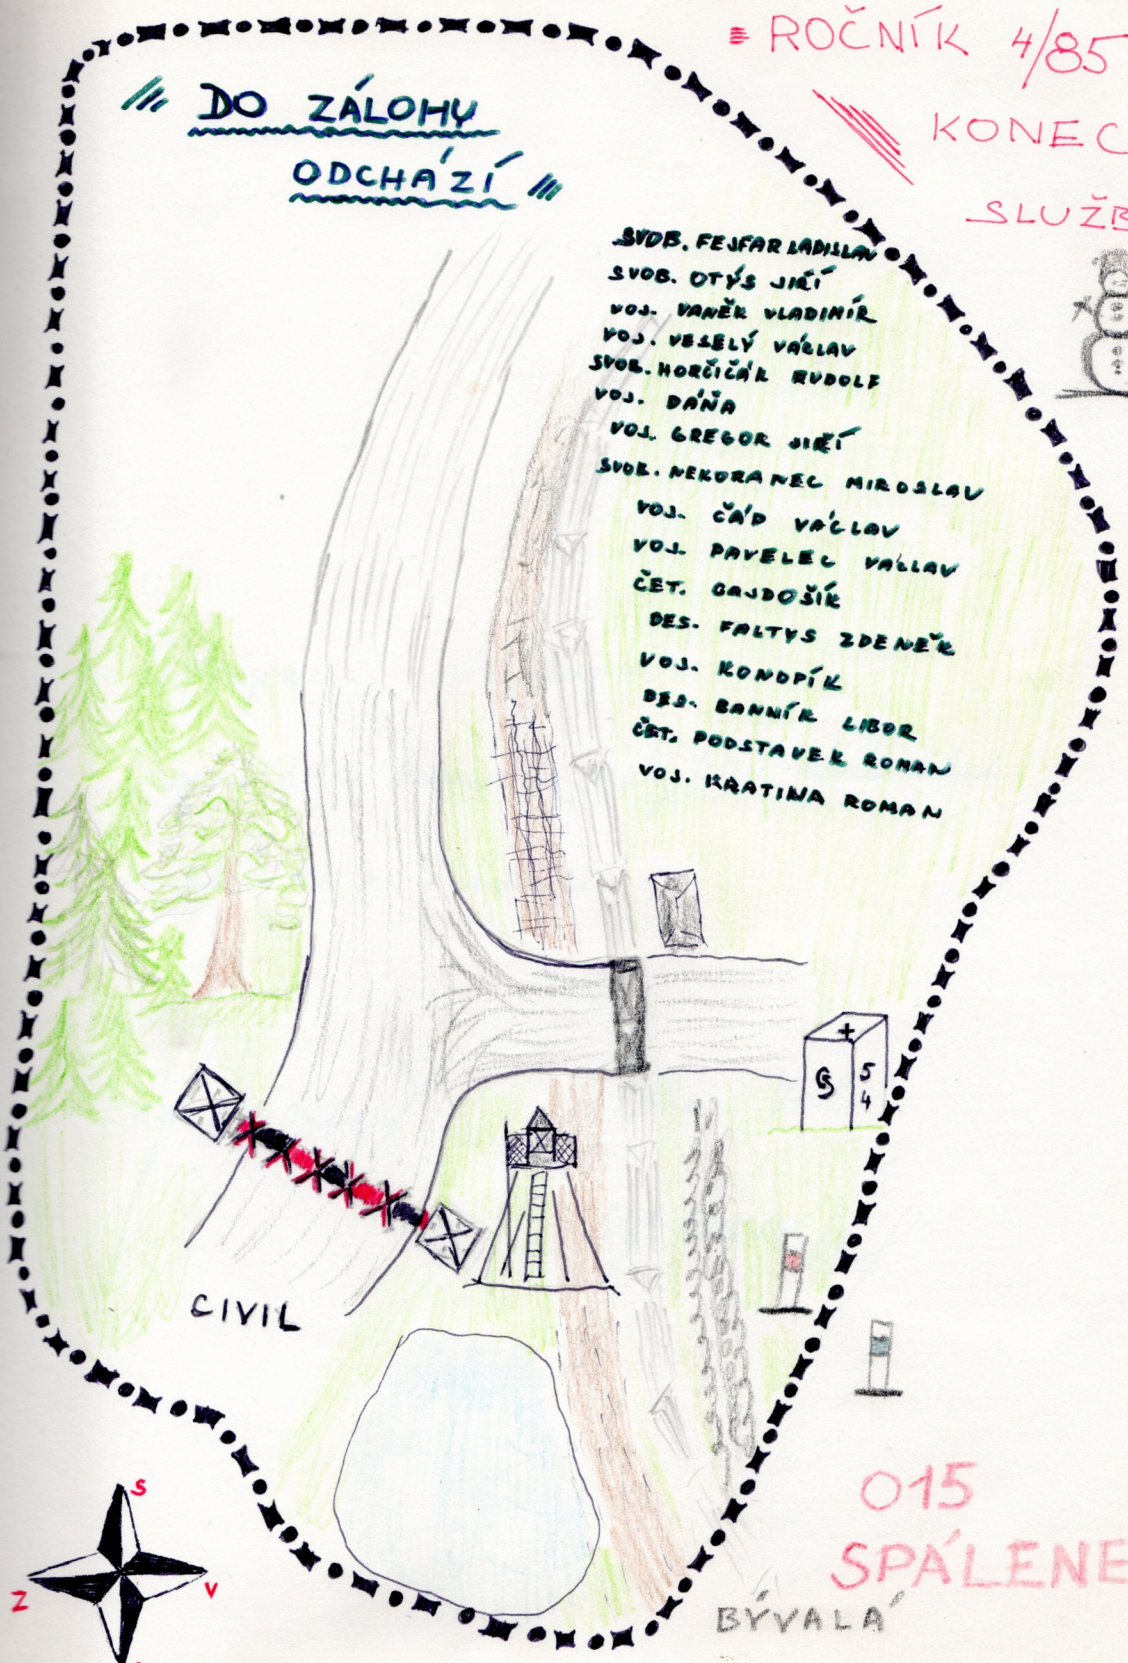 ROČNÍK 4/85
KONEC
SLUŽB
DO ZÁLOHY
ODCHÁZÍ
SVOB. FEJFAR LADISLAV
SVOB. OTÝS JIŘÍ
VOJ. VANĚK VLADIMÍR
VOJ. VESELÝ VÁCLAV
SVOB. HORČIČÁK RUDOLF
VOJ. DÁŇA
VOJ. GREGOR JIŘÍ
SVOB. NEKORANEC MIROSLAV
VOJ. ČÁP VÁCLAV
VOJ. PAVELEC VÁCLAV
ČET. GAJDOŠÍK
DES. FALTYS ZDENĚK
VOJ. KONOPÍK
DES. BANNÍK LIBOR
ČET. PODSTAVEK ROMAN
VOJ. KRATINA ROMAN
54
CIVIL
S
Z
V
015
SPÁLENE
BÝVALÁ